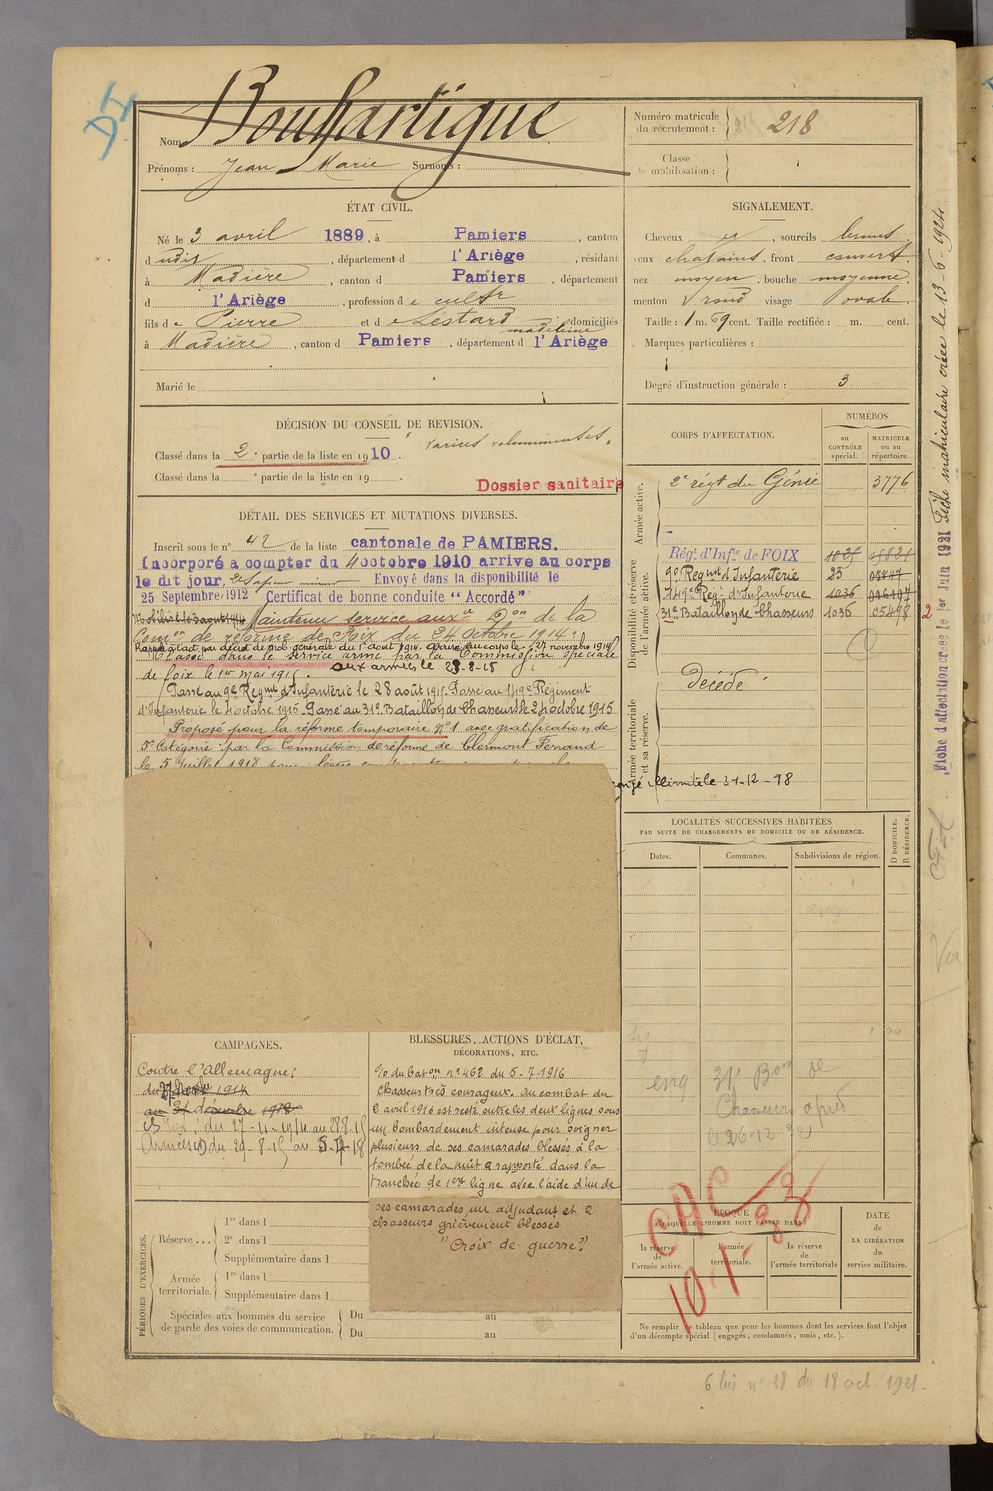 Nom
Bouhartigue
Prénoms : Jean Marie Surnoms :
Numéro matricule
du recrutement : 218
Classe
de mobilisation :
ÉTAT CIVIL.
Né le 3 avril 1889, à Pamiers, canton
dudit, département d l'Ariège, résidant
à Madière, canton d Pamiers, département
d l'Ariège, profession de cultr
fils de Pierre et de Lestard madeleine domiciliés
à Madière, canton d Pamiers, département d l'Ariège
Marié le
SIGNALEMENT.
Cheveux et, sourcils bruns
yeux chatains, front couvert.
nez moyen, bouche moyenne.
menton rond visage ovale.
Taille : 1 m. 69 cent. Taille rectifiée : m. cent.
Marques particulières :
Degré d'instruction générale : 3
DÉCISION DU CONSEIL DE REVISION.
Classé dans la 2e partie de la liste en 1910. varices volumineuses.
Classé dans la e partie de la liste en 19 .
Dossier sanitaire
DÉTAIL DES SERVICES ET MUTATIONS DIVERSES.
Inscrit sous le n° 42 de la liste cantonale de PAMIERS.
Incorporé a compter du 4 octobre 1910 arrive au corps
le dit jour, Envoyé dans la disponibilité le
25 Septembre 1912 Certificat de bonne conduite "Accordé"
Maintenu service auxre Don de la
Comon de réforme de Foix du 24 octobre 1914.
Rappelé à l'act. par décret de mob. générale du 1er août 1914. Arrivé au corps le 27 novembre 1914
Classé dans le service armé par la Commission spéciale
de foix le 1er mai 1915. aux armées le 28-8-15
Passé au 9e Régmt d'Infanterie le 28 août 1915. Passé au 149e Régiment
d'Infanterie le 4 octobre 1915. Passé au 31e Bataillon de Chasseurs le 24 octobre 1915
Proposé pour la réforme temporaire n°1 avec gratification de
5e Catégorie par la Commission de réforme de Clermont Ferrand
le 5 Juillet 1918 pour
congé illimité le 31-12-98
CORPS D'AFFECTATION.
NUMÉROS
au
CONTRÔLE
spécial.
MATRICULE
ou au
répertoire.
Armée active.
2e régt du Génie 3776
Disponibilité et réserve
de l'armée active.
Régt d'Infie de FOIX
9e Regmt d'Infanterie 23
149e Reg. d'Infanterie 1036
31e Bataillon de Chasseurs 1036 05498
Décédé
Armée territoriale
et sa réserve.
Fiche d'affectation créée le 1er Juin 1921 Fiche matriculaire créée le 13-6-1924
LOCALITÉS SUCCESSIVES HABITÉES
PAR SUITE DE CHANGEMENTS DE DOMICILE OU DE RÉSIDENCE.
Dates. Communes. Subdivisions de région.
D DOMICILE.
R RÉSIDENCE.
31e Bon de
Chasseurs à pied
CAMPAGNES.
Contre l'Allemagne :
du 27 1914
au 31 décembre 1918
du 27-11-1914 au 28-8-15
(Armées) du 29-8-15 au 5-7-18
BLESSURES, ACTIONS D'ÉCLAT,
DÉCORATIONS, ETC.
%o du baton n° 462 du 5-7-1916
Chasseur très courageux. Au combat du
2 avril 1916 est resté entre les deux lignes sous
un bombardement intense pour soigner
plusieurs de ses camarades blessés à la
tombée de la nuit a rapporté dans la
tranchée de 1ère ligne avec l'aide d'un de
ses camarades, un adjudant et 2
chasseurs grièvement blessés
"Croix de guerre"
PÉRIODES D'EXERCICES.
Réserve ...
1re dans l
2e dans l
Supplémentaire dans l
Armée
territoriale.
1re dans l
Supplémentaire dans l
Spéciales aux hommes du service
de garde des voies de communication.
Du au
Du au
ÉPOQUE
À LAQUELLE L'HOMME DOIT PASSER DANS :
la réserve
de
l'armée active.
l'armée
territoriale.
la réserve
de
l'armée territoriale
DATE
de
LA LIBÉRATION
du
service militaire.
Ne remplir ce tableau que pour les hommes dont les services font l'objet
d'un décompte spécial (engagés, condamnés, omis, etc.).
6 bis n° 28 du 18 oct. 1921.